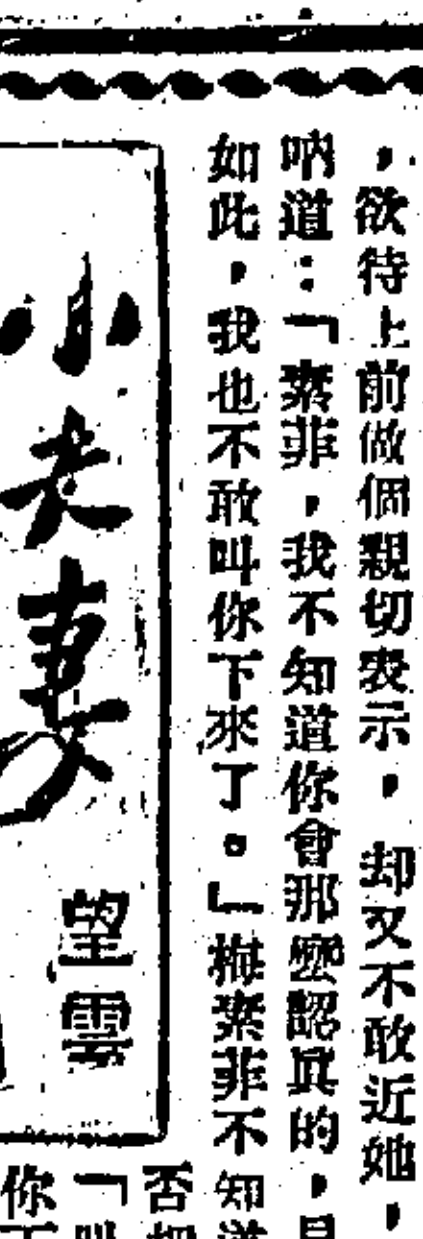 ，欲待上前做個親切表示，却又不敢近她，
吶道：「素菲，我不知道你會那麼認眞的，早
如此，我也不敢叫你下來了。」梅素菲不知道
小夫妻
望雲
否把
「叫
你下